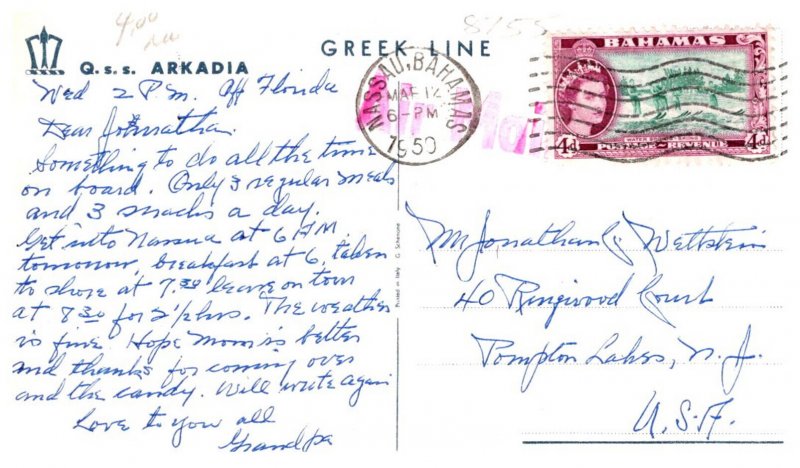 4.00
8755
GREEK LINE
Q.S.S. ARKADIA
Wed 2 P.M. Off Florida
Dear Johnathan.
Something to do all the time
on board. Only 3 regular meals
and 3 snacks a day.
Get into Nassua at 6 A.M.
tomorrow, breakfast at 6, taken
to shore at 7.30 leave on tour
at 8 30 for 2 1/2 hrs. The weather
is fine Hope Mom is better
and thanks for coming over
and the candy. Will write again
Love to you all
Grandpa
Printed in Italy G. Schenone
NASSAU, BAHAMAS
MAR 12
6-PM
Air Mail
BAHAMAS
4d 4d
POSTAGE & REVENUE
Mr Jonathan Wettstein
40 Ringwood Court
Pompton Lakes, N.J.
U.S.A.